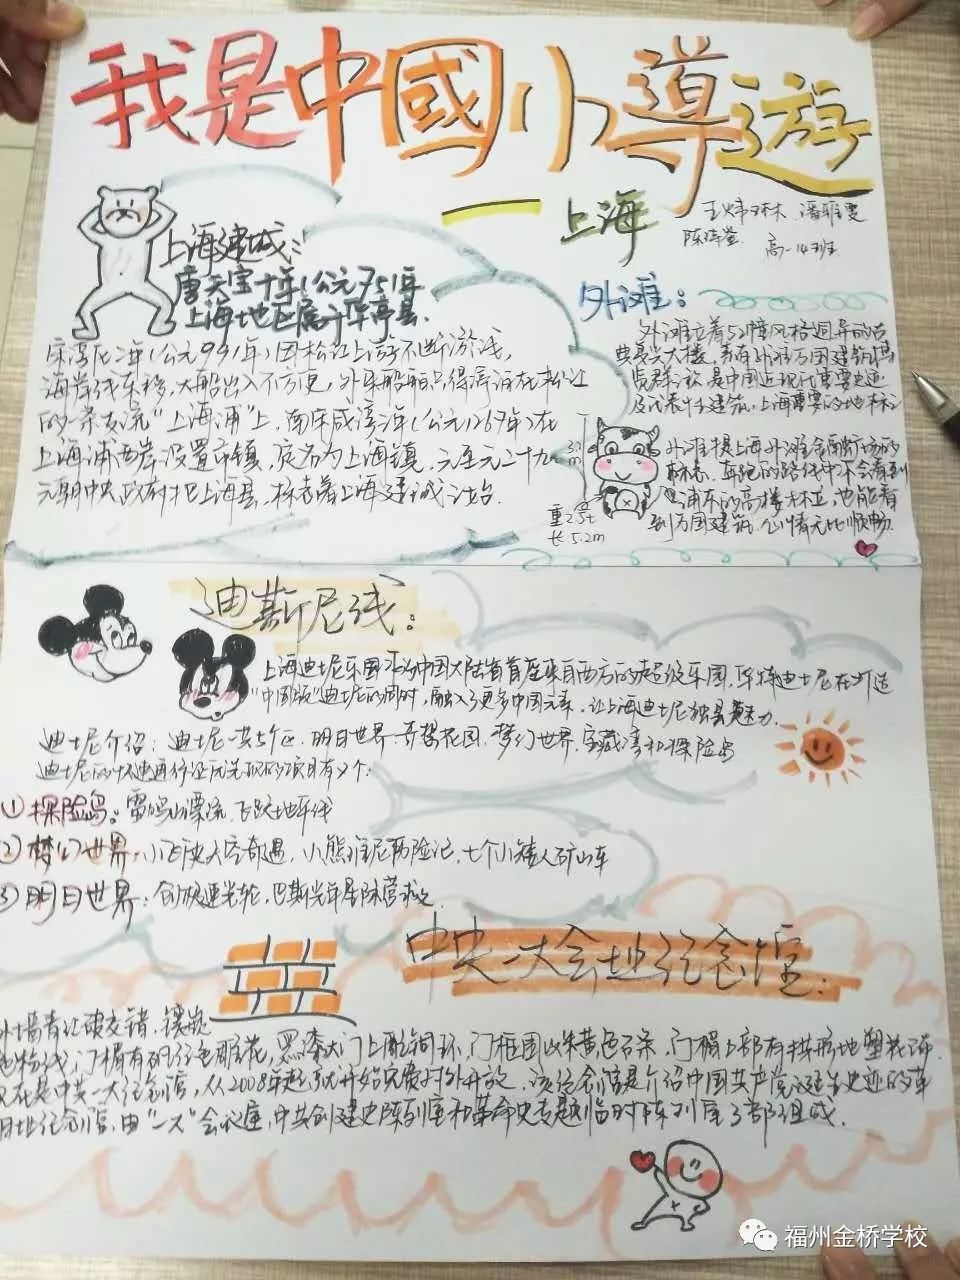 我是中國小導遊
上海
高一14班
上海建城：
唐天宝十年（公元751年
上海地区属于华亭县.
年（公元991年）因松江上游不断淤浅，
海岸线东移，大船出入不方便，外来船舶只得停泊在松江
的一条支流“上海浦”上，南宋咸淳年（公元1267年）在
上海浦西岸设置市镇，定名为上海镇.元至元二十九
元朝中央政府把上海县，标志着上海建城
外滩：
外滩立着52幢风格迥异的古
典复兴大楼，素有外滩万国建筑博
览群之称，是中国近现代重要史迹
及代表性建筑，上海重要的地标
外滩是上海外滩金融
路线中不会看到
浦东的高楼林立，也能看
到万国建筑，心情无比顺畅.
3.2m
重2.5t
长5.2m
迪斯尼线：
上海迪士尼乐园 中国大陆 首座来自西方的超级乐园，坚持迪士尼在打造
“中国版”迪士尼的同时，融入了更多中国元素，让上海迪士尼独具魅力.
迪士尼介绍：迪士尼一共5个区，明日世界.奇想花园.梦幻世界.宝藏湾和探险岛
迪士尼的快速通行证可兑换的项目有7个：
①探险岛：雷鸣山漂流.飞跃地平线
②梦幻世界：小飞侠天空奇遇，小熊维尼历险记，七个小矮人矿山车
③明日世界：创极速光轮，巴斯光年星际营救
中央一大会址纪念馆：
外墙青红砖交错，镶嵌
粉线，门楣有矾红色雕花，黑漆大门上雕铜环，门框围以米黄色石条，门楣上部有拱形堆塑花饰.
现在是中共一大纪念馆，从2008年起就开始免费对外开放.该纪念馆是介绍中国共产党诞生史迹的革
纪念馆，由“一大”会议室，中共创建史陈列室和革命史专题临时陈列室3部组成.
福州金桥学校